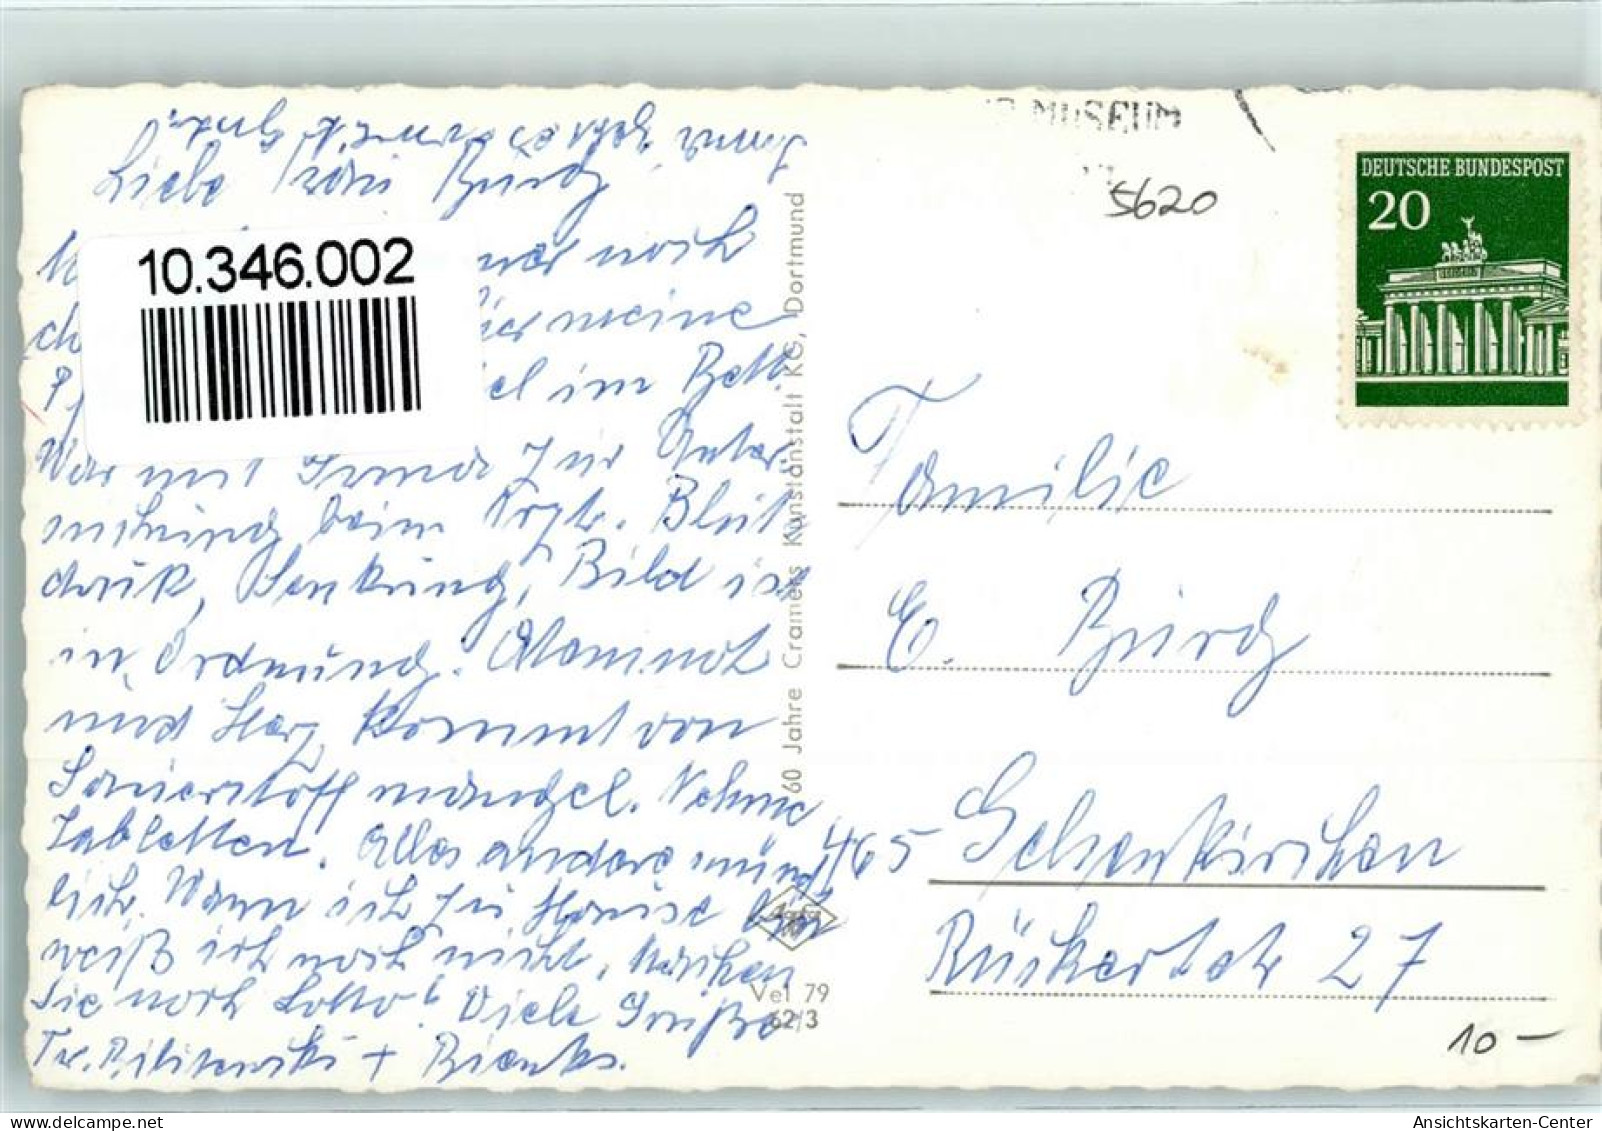 Irma geht es immer gut.
Liebe Frau Burg
immer noch
hier meine
viel im Bett.
War mit Irma zur Unter-
suchung beim Arzt. Blut
druck, Senkung, Bild ist
in Ordnung. Atemnot
und Herz kommt von
Sauerstoff mangel. Nehme
Tabletten. Alles andere münd
lich. Wann ich zu Hause bin
weiß ich noch nicht. Machen
Sie noch Lotto? Viele Grüße
Fr. +
10.346.002
60 Jahre Cramers Kunstanstalt KG, Dortmund
Vel 79
62/3
MUSEUM
5620
DEUTSCHE BUNDESPOST
20
Familie
E. Burg
465 Gelsenkirchen
Rückertstr 27
10-
AnsichtsKarten-Center